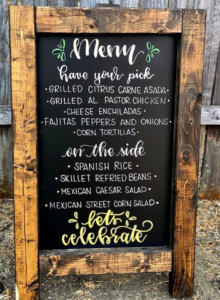 Menu
have your pick
GRILLED CITRUS CARNE ASADA
• GRILLED AL PASTOR CHICKEN •
• CHEESE ENCHILADAS •
• FAJITAS PEPPERS AND ONIONS •
• CORN TORTILLAS •
on the side
• SPANISH RICE •
• SKILLET REFRIED BEANS •
• MEXICAN CAESAR SALAD •
• MEXICAN STREET CORN SALAD •
let's
celebrate